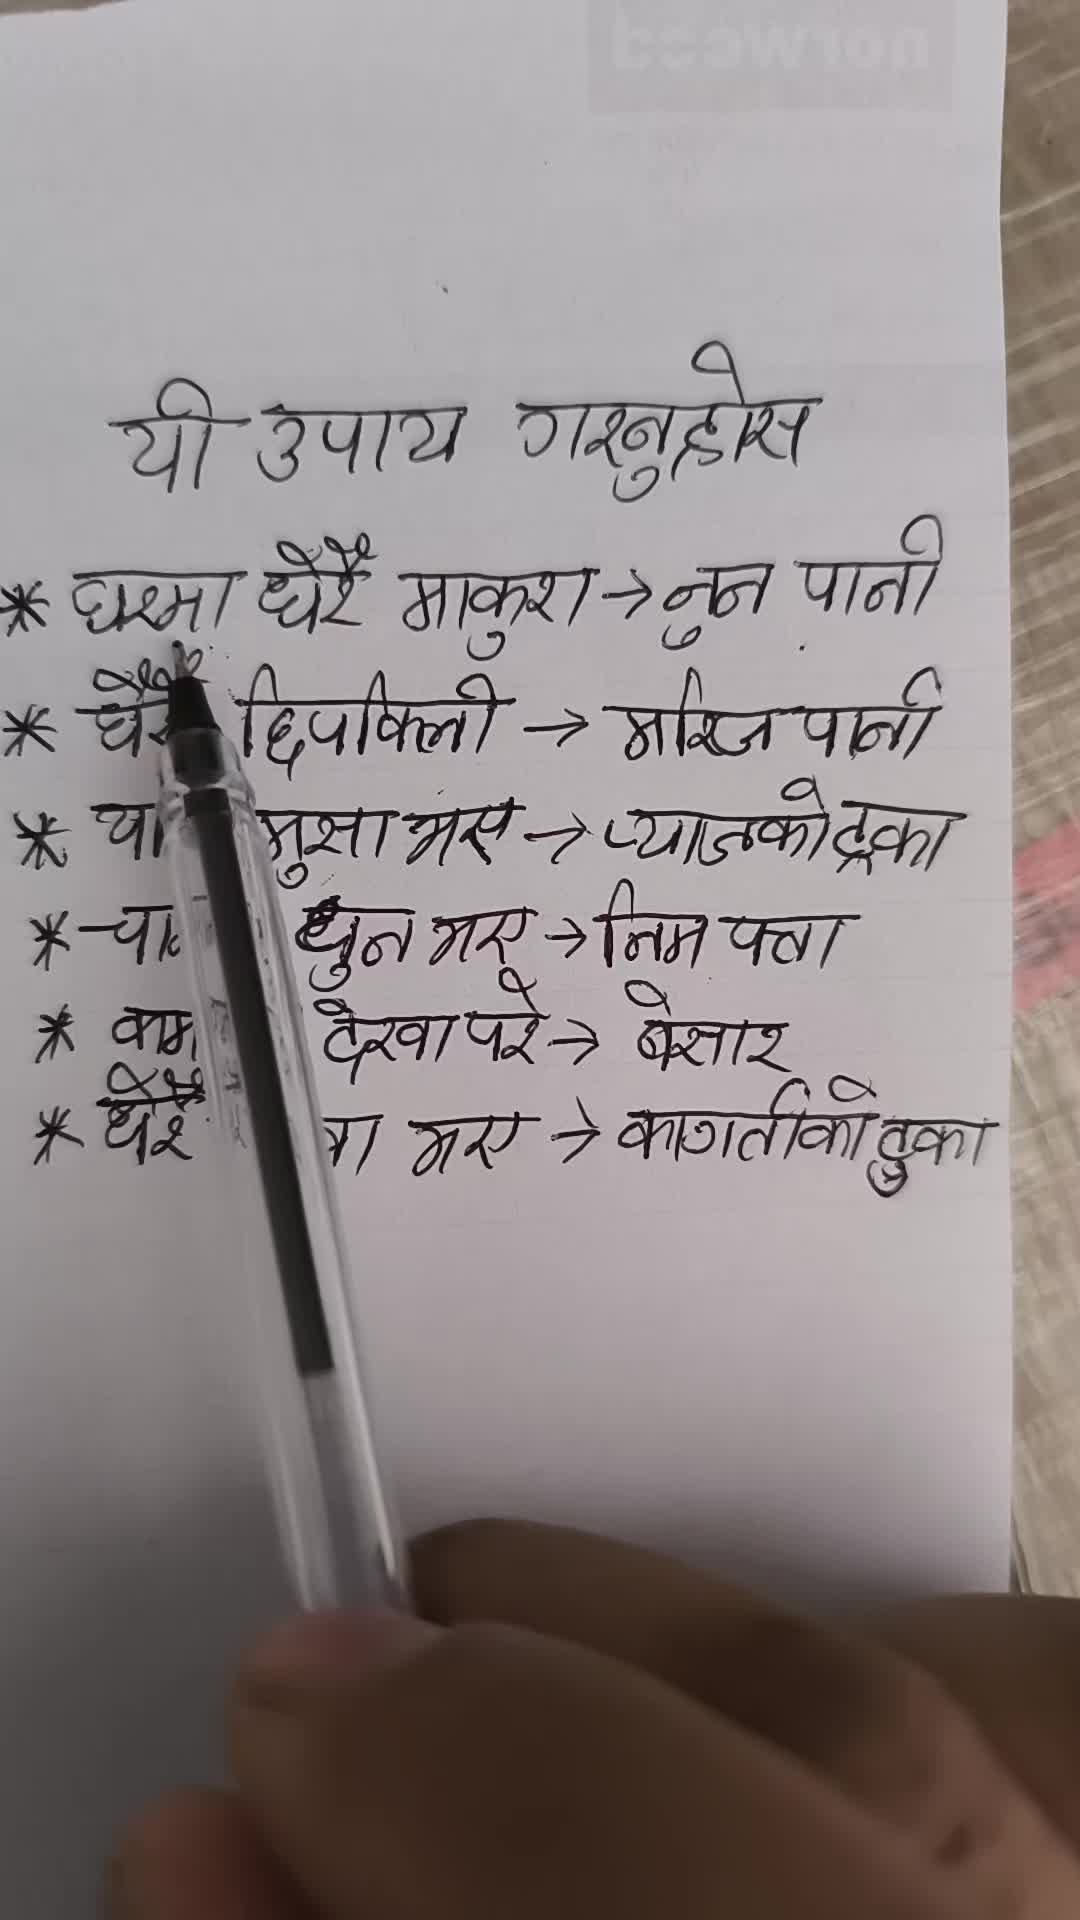 यी उपाय गरनुहोस
* घरमा धेरै माकुरा → नुन पानी
* धेरै छिपकिली → मरिज पानी
* मुसा भए → प्याजको टूका
* धुन भए → निम पत्ता
* देखा परे → बेसार
* धेरै भए → कागतीको टुक्रा